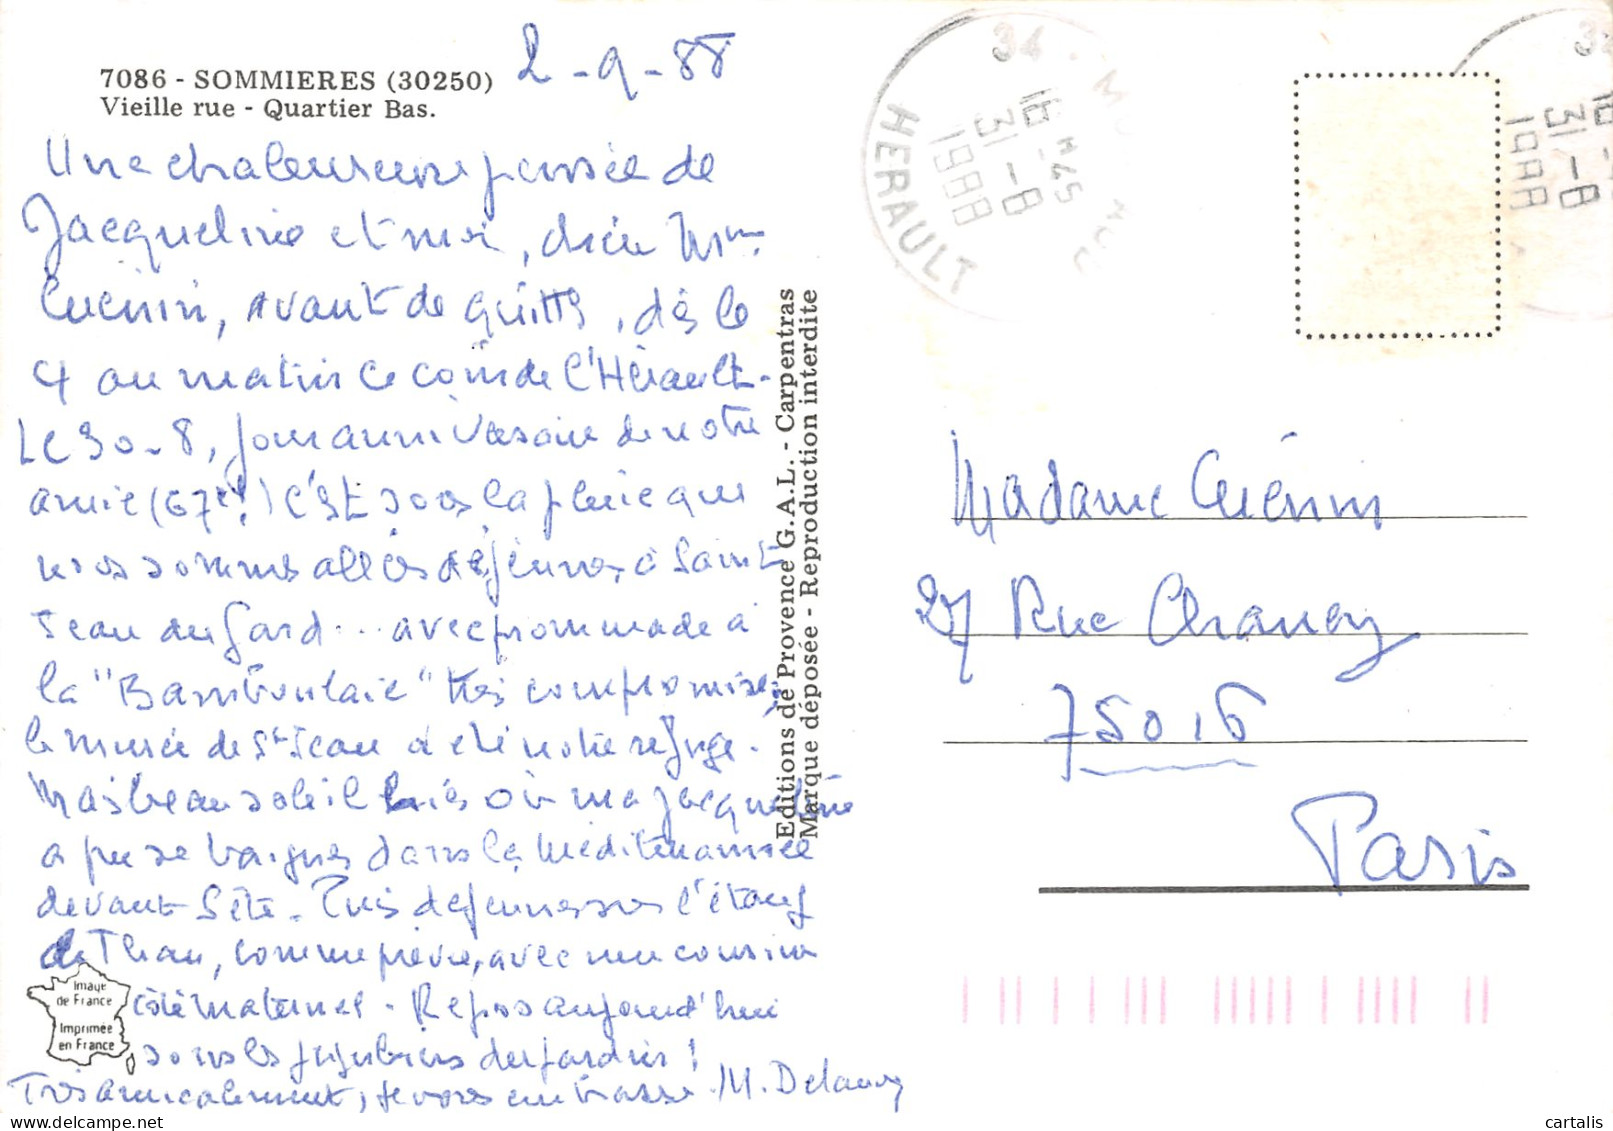 7086 - SOMMIERES (30250)
Vieille rue - Quartier Bas.
2-9-88
Une chaleureuse pensée de
Jacqueline et moi, chère Mme
Guénin, avant de quitter, dès le
4 au matin ce coin de l'Hérault.
Le 30-8, jour anniversaire de notre
amie (67e!) c'est sous la pluie que
nous sommes allées déjeuner à Saint
Jean du Gard... avec promenade à
la "Bambouseraie" très compromise;
le musée de St Jean a été notre refuge.
Mais beau soleil hier où ma Jacqueline
a pu se baigner dans la Méditerranée
devant Sète. Puis déjeuner sur l'étang
de Thau, comme prévu, avec une cousine
côté maternel. Repos aujourd'hui
sous les jujubiers du jardin!
Très amicalement, je vous embrasse. M. Delaunay
Editions de Provence G.A.L. - Carpentras
Marque déposée - Reproduction interdite
Image
de France
Imprimée
en France
34
16 H45
31-8
1988
HERAULT
16
31-8
1988
Madame Guénin
27 Rue Chanez
75016
Paris
cartalis